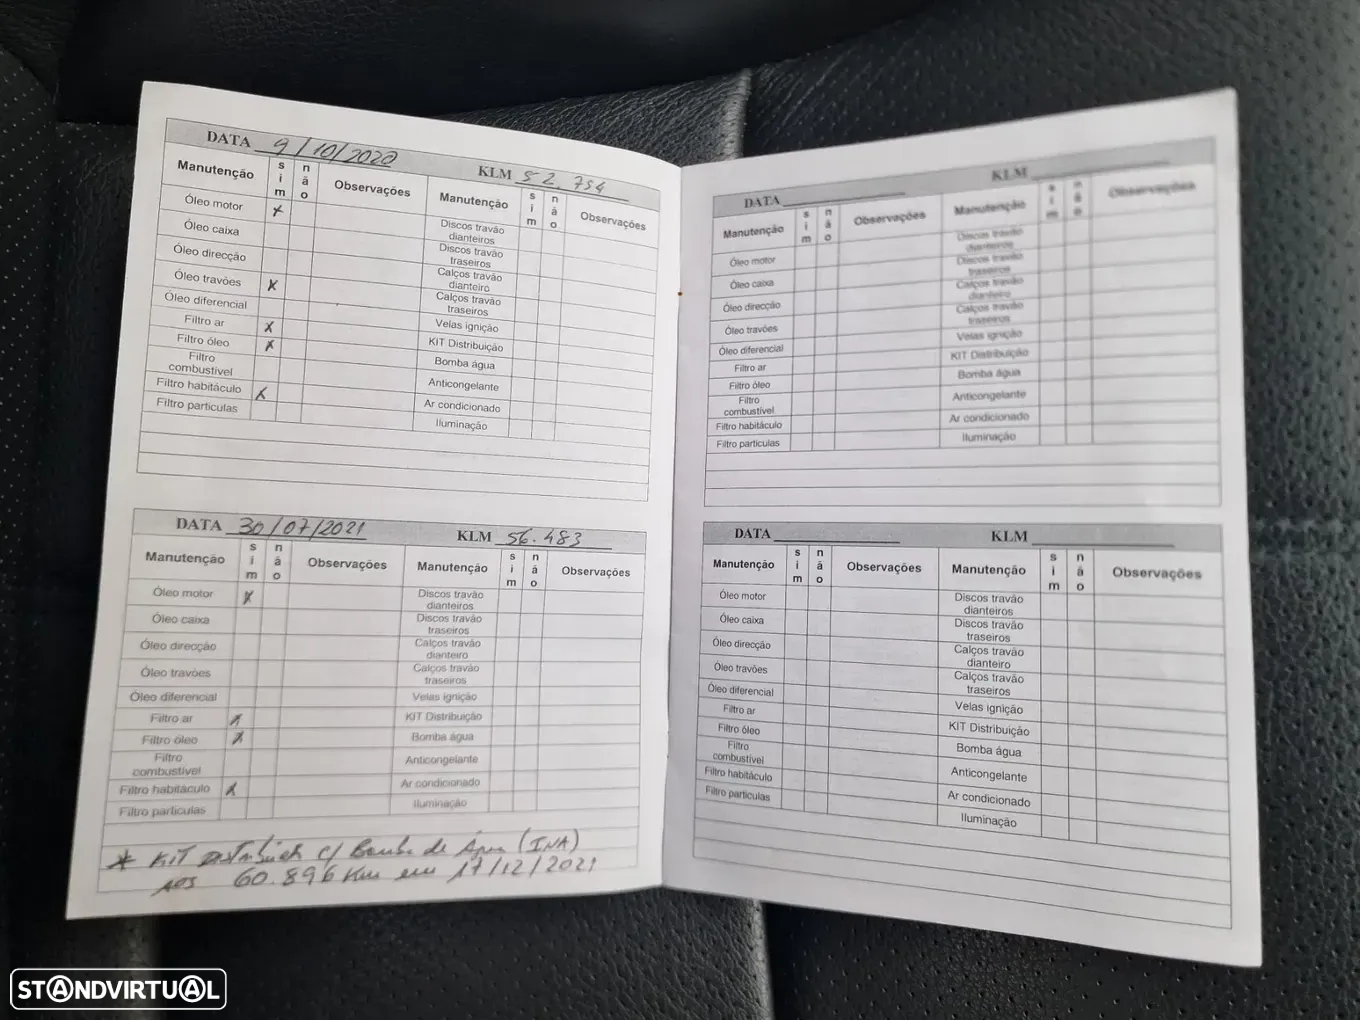 DATA 9/10/2020 KLM 52.754
Manutenção sim não Observações Manutenção sim não Observações
Óleo motor x Discos travão dianteiros
Óleo caixa Discos travão traseiros
Óleo direcção Calços travão dianteiro
Óleo travões x Calços travão traseiros
Óleo diferencial Velas ignição
Filtro ar x KIT Distribuição
Filtro óleo x Bomba água
Filtro combustível Anticongelante
Filtro habitáculo x Ar condicionado
Filtro particulas Iluminação
DATA 30/07/2021 KLM 56.483
Manutenção sim não Observações Manutenção sim não Observações
Óleo motor x Discos travão dianteiros
Óleo caixa Discos travão traseiros
Óleo direcção Calços travão dianteiro
Óleo travões Calços travão traseiros
Óleo diferencial Velas ignição
Filtro ar x KIT Distribuição
Filtro óleo x Bomba água
Filtro combustível Anticongelante
Filtro habitáculo x Ar condicionado
Filtro particulas Iluminação
* KIT Distribuição c/ Bomba de Água (INA)
aos 60.896 Km em 17/12/2021
DATA KLM
Manutenção sim não Observações Manutenção sim não Observações
Óleo motor Discos travão dianteiros
Óleo caixa Discos travão traseiros
Óleo direcção Calços travão dianteiro
Óleo travões Calços travão traseiros
Óleo diferencial Velas ignição
Filtro ar KIT Distribuição
Filtro óleo Bomba água
Filtro combustível Anticongelante
Filtro habitáculo Ar condicionado
Filtro particulas Iluminação
DATA KLM
Manutenção sim não Observações Manutenção sim não Observações
Óleo motor Discos travão dianteiros
Óleo caixa Discos travão traseiros
Óleo direcção Calços travão dianteiro
Óleo travões Calços travão traseiros
Óleo diferencial Velas ignição
Filtro ar KIT Distribuição
Filtro óleo Bomba água
Filtro combustível Anticongelante
Filtro habitáculo Ar condicionado
Filtro particulas Iluminação
STANDVIRTUAL